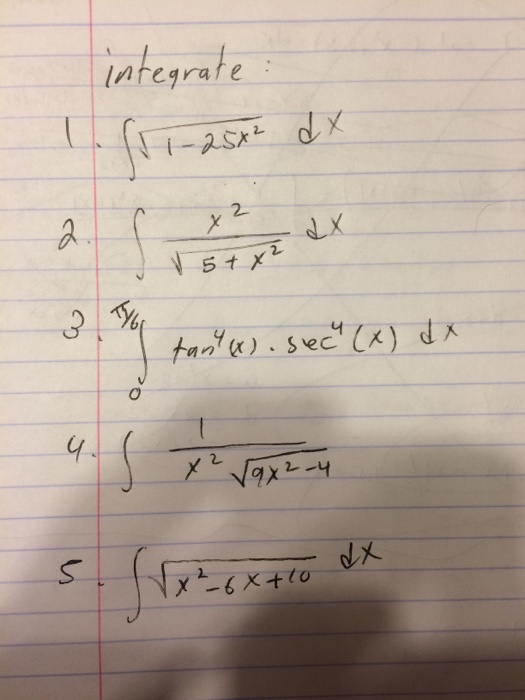 integrate :
1. ∫√(1-25x²) dx
2. ∫ x²/√(5+x²) dx
3. ∫₀^(π/6) tan⁴(x) · sec⁴(x) dx
4. ∫ 1/(x² √(9x²-4))
5. ∫√(x²-6x+10) dx